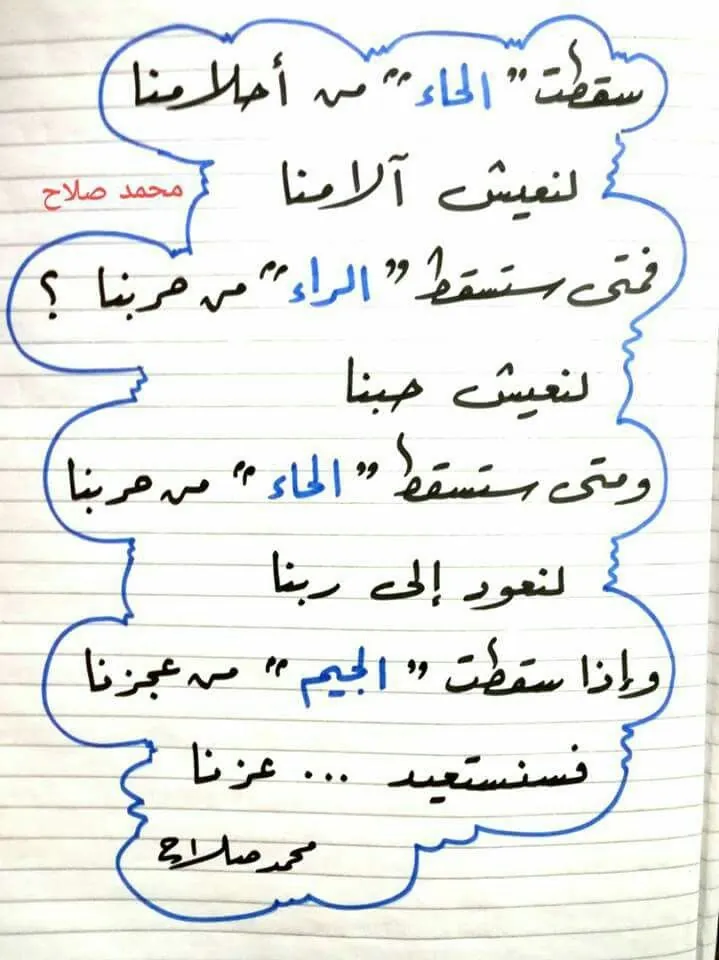 سقطت "الحاء" من أحلامنا
لنعيش آلامنا
محمد صلاح
فمتى ستسقط "الراء" من حربنا ؟
لنعيش حبنا
ومتى ستسقط "الحاء" من حربنا
لنعود إلى ربنا
وإذا سقطت "الجيم" من عجزنا
فسنستعيد ... عزنا
محمد صلاح